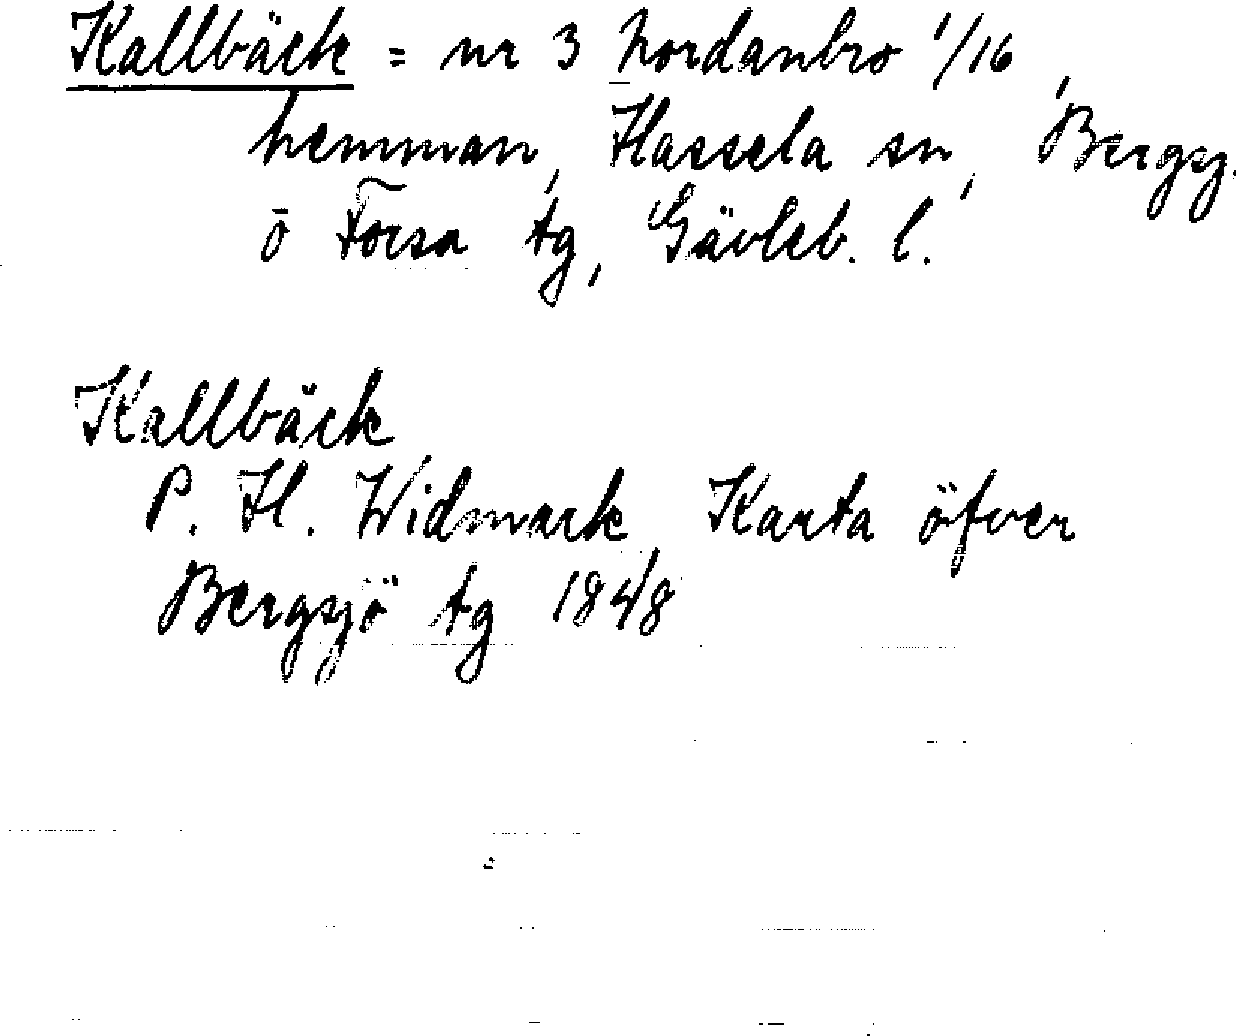 Kallbäck = nr 3 Nordanbro 1/16,
hemman, Hassela sn, Bergsj.
o Forsa tg, Gävleb. l.
Kallbäck
P. H. Widmark, Karta öfver
Bergsjö tg 1848